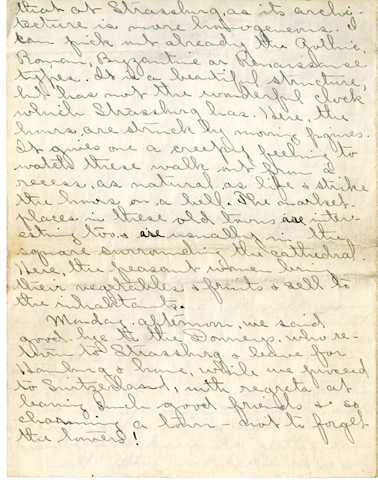 that at Strassburg, as its archi-
tecture is more homogeneous. I
can pick out already the Gothic,
Roman, Byzantine or Renaissance
types. It is a beautiful structure,
but has not the wonderful clock
which Strassburg has. Here, the
hours are struck by moving figures.
It gives one a creepy feeling to
watch these walk out from a
recess, as natural as life & strike
the hours on a bell. The market-
places in these old towns are inter-
esting too, & are usually in the
square surrounding the cathedral.
Here, the peasant women bring
their vegetables & fruits & sell to
the inhabitants.
Monday afternoon, we said
good-bye to the, who re-
turn to Strassburg & leave for
Hamburg & home, while we proceed
to Switzerland, with regrets at
leaving such good friends & so
charming a town – not to forget
the towers!